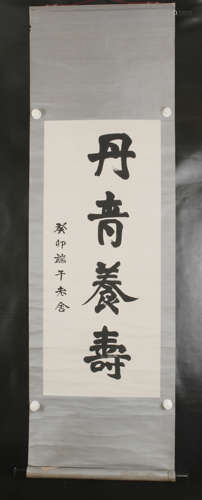 丹青養壽
癸卯端午老舍